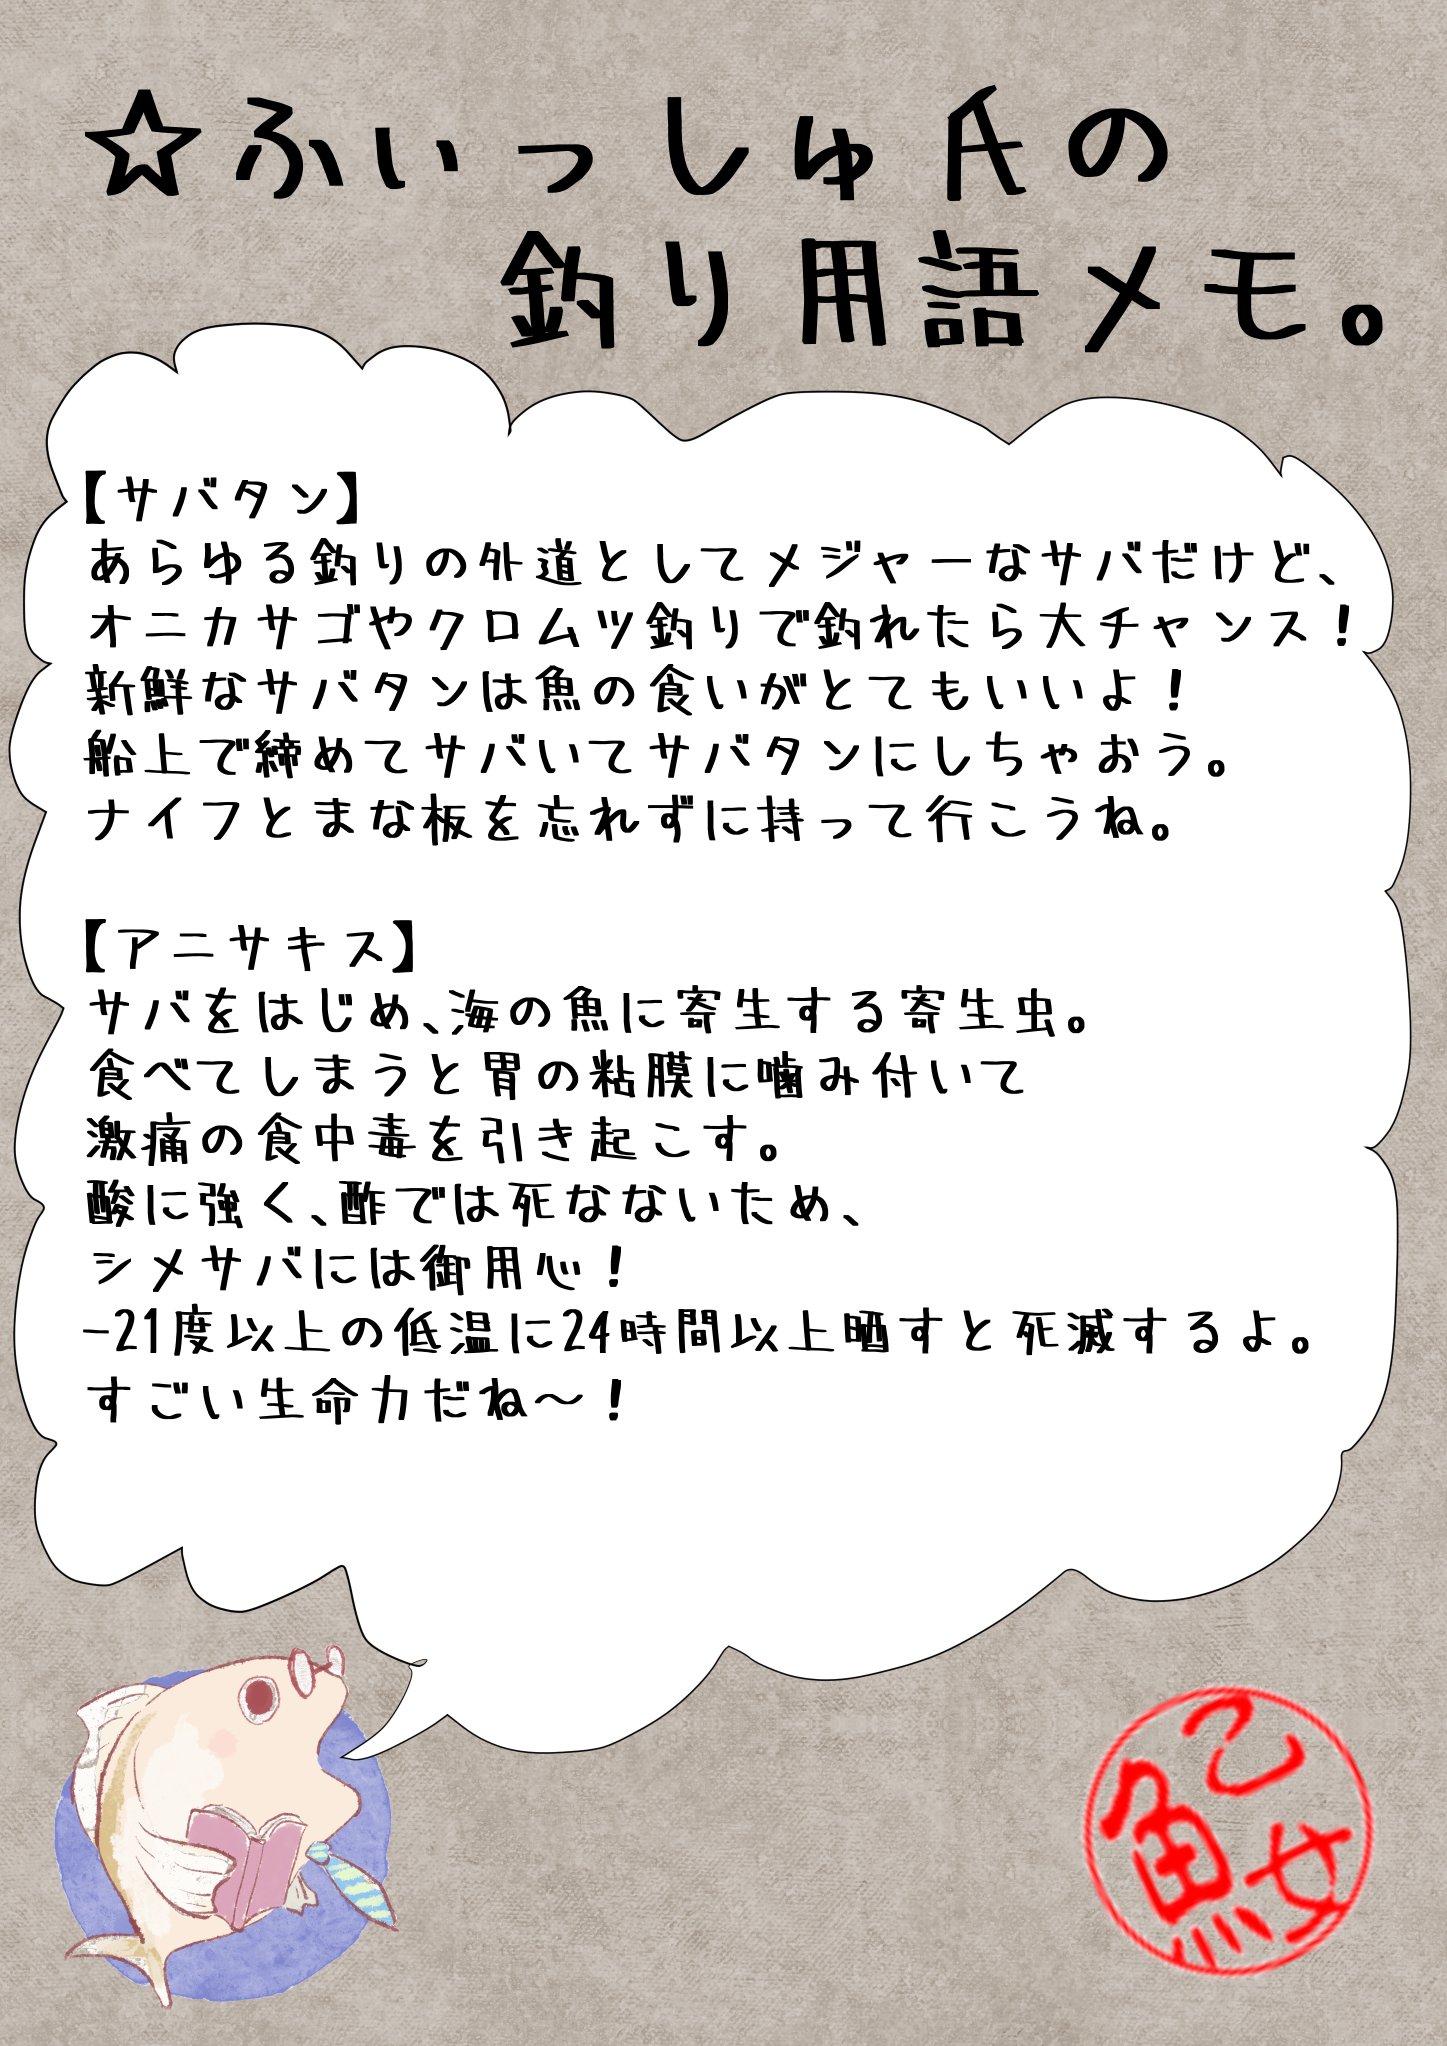 ☆ふぃっしゅ氏の
釣り用語メモ。
【サバタン】
あらゆる釣りの外道としてメジャーなサバだけど、
オニカサゴやクロムツ釣りで釣れたら大チャンス!
新鮮なサバタンは魚の食いがとてもいいよ!
船上で締めてサバいてサバタンにしちゃおう。
ナイフとまな板を忘れずに持って行こうね。
【アニサキス】
サバをはじめ、海の魚に寄生する寄生虫。
食べてしまうと胃の粘膜に噛み付いて
激痛の食中毒を引き起こす。
酸に強く、酢では死なないため、
シメサバには御用心!
-21度以上の低温に24時間以上晒すと死滅するよ。
すごい生命力だね～!
乙
魚
女